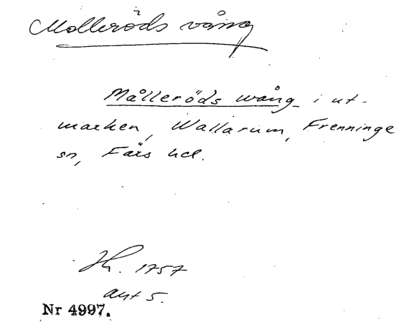 Molleröds vång
Målleröds wång i ut-
marken, Wallarum, Frenninge
sn, Färs hd.
Jh. 1757
akt 5.
Nr 4997.